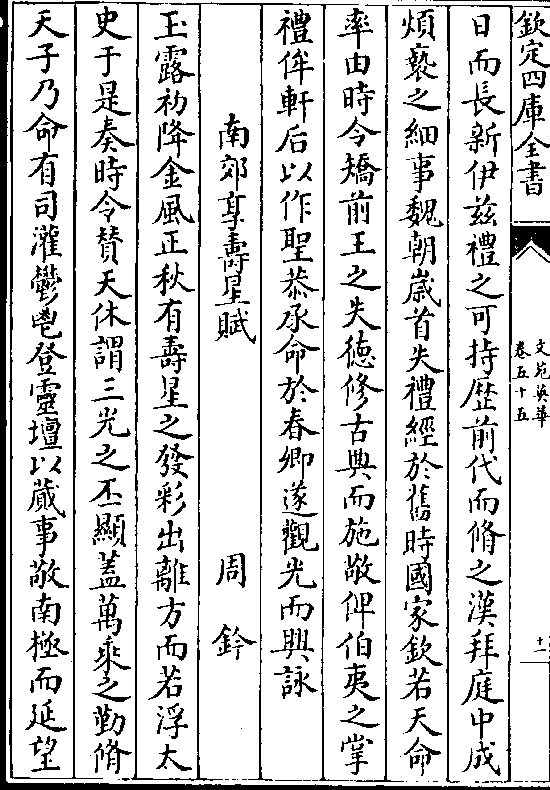 欽定四庫全書
文苑英華
卷五十五
十一
日而長新伊兹禮之可持歴前代而脩之漢拜庭中成
煩褻之細事魏朝歲首失禮經於舊時國家欽若天命
率由時令矯前王之失德修古典而施敬俾伯夷之掌
禮侔軒后以作聖恭承命於春卿遂觀光而興詠
南郊享壽星賦
周鈐
玉露初降金風正秋有壽星之發彩出離方而若浮太
史于是奏時令賛天休謂三光之丕顯蓋萬乘之勤脩
天子乃命有司灌鬱鬯登靈壇以蕆事敬南極而延望